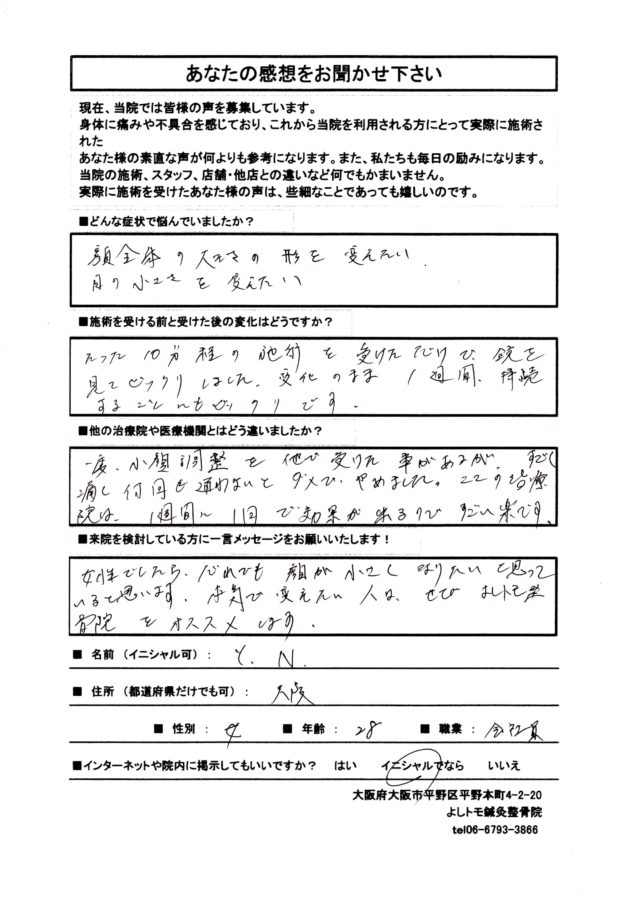 あなたの感想をお聞かせ下さい
現在、当院では皆様の声を募集しています。
身体に痛みや不具合を感じており、これから当院を利用される方にとって実際に施術さ
れた
あなた様の素直な声が何よりも参考になります。また、私たちも毎日の励みになります。
当院の施術、スタッフ、店舗・他店との違いなど何でもかまいません。
実際に施術を受けたあなた様の声は、些細なことであっても嬉しいのです。
■どんな症状で悩んでいましたか？
顔全体の大きさの形を変えたい.
目の小ささを変えたい
■施術を受ける前と受けた後の変化はどうですか？
たった10分程の施術を受けただけで、鏡を
見てビックリしました。変化のまま1週間、持続
することにもビックリです.
■他の治療院や医療機関とはどう違いましたか？
一度、小顔調整を他で受けた事があるが、すごく
痛し何回も通わないとダメで、やめました。ここの治療
院は、1週間に1回で効果が出るのですごい楽です。
■来院を検討している方に一言メッセージをお願いいたします！
女性でしたら、だれでも顔が小さくなりたいと思って
いると思います。本気で変えたい人は、ぜひよしトモ整
骨院をオススメします。
■ 名前（イニシャル可）： Y. N.
■ 住所（都道府県だけでも可）： 大阪
■ 性別： 女 ■ 年齢： 28 ■ 職業： 会社員
■インターネットや院内に掲示してもいいですか？ はい イニシャルでなら いいえ
大阪府大阪市平野区平野本町4-2-20
よしトモ鍼灸整骨院
tel06-6793-3866